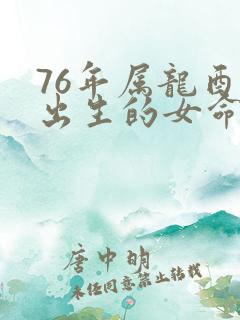 76年属龍酉
出生的女命
唐中明
未经同意禁止转载